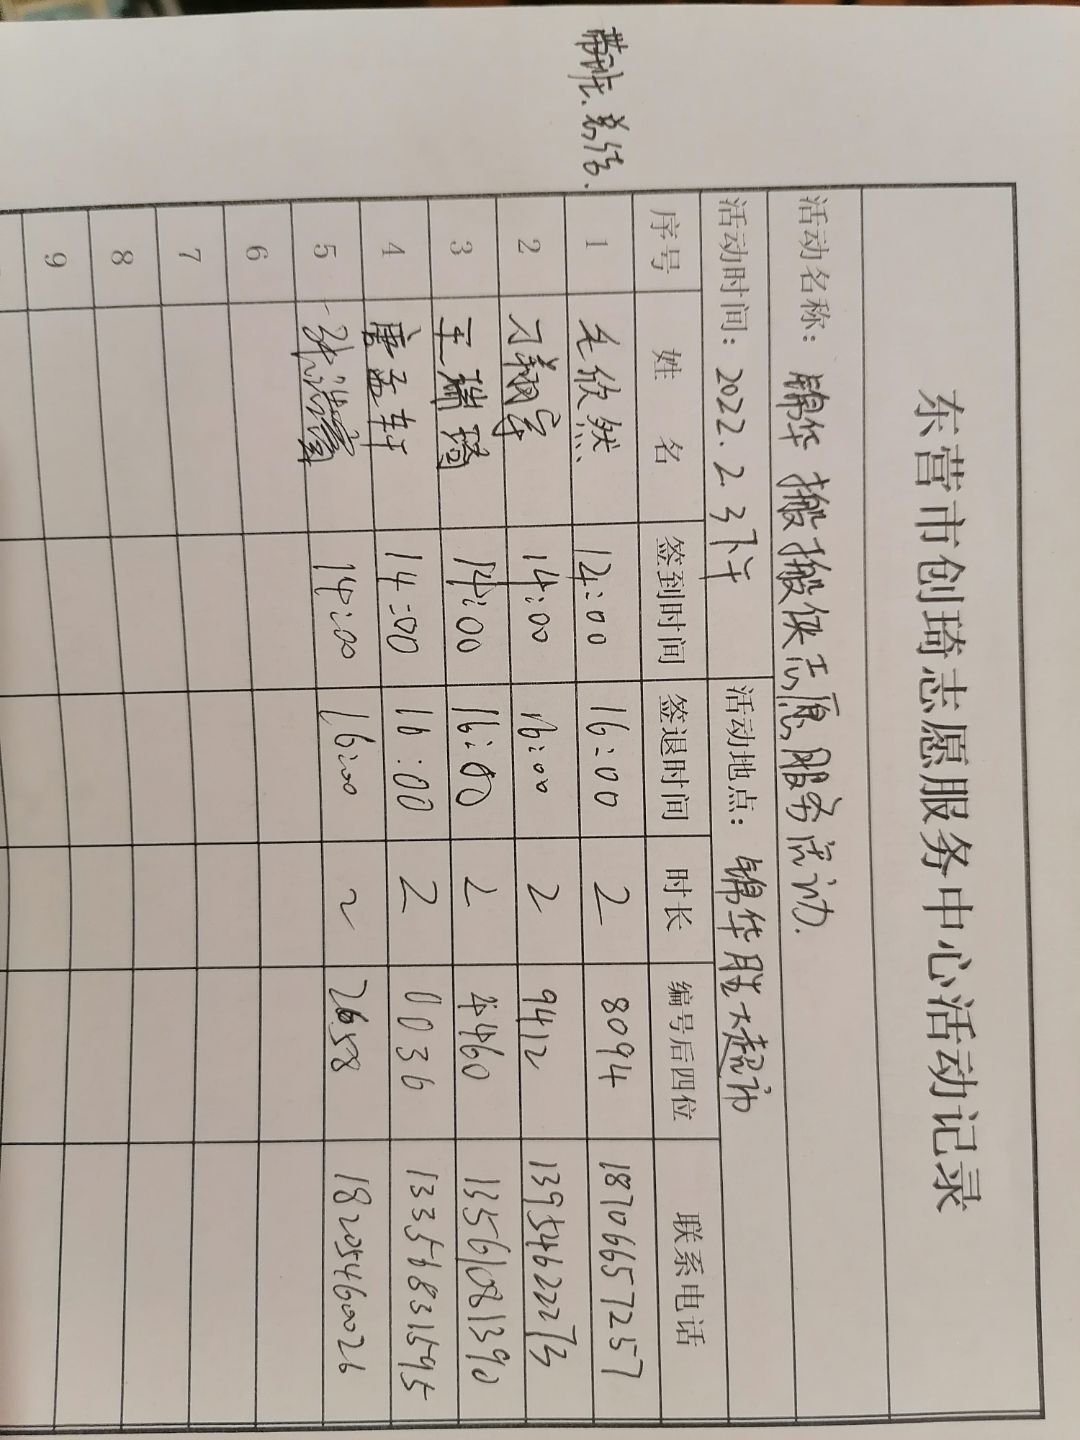 东营市创琦志愿服务中心活动记录
活动名称：锦华搬搬侠志愿服务活动.
活动时间：2022.2.3下午 活动地点：锦华胜大超市
序号 姓名 签到时间 签退时间 时长 编号后四位 联系电话
1 毛欣然 14:00 16:00 2 8094 18706657257
2 刁翔宇 14:00 16:00 2 9412 13954622273
3 王瑞 14:00 16:00 2 4460 13561081390
4 唐孟轩 14:00 16:00 2 0036 13356831595
5 张 14:00 16:00 2 2658 18205460026
6
7
8
9
带班.总结.